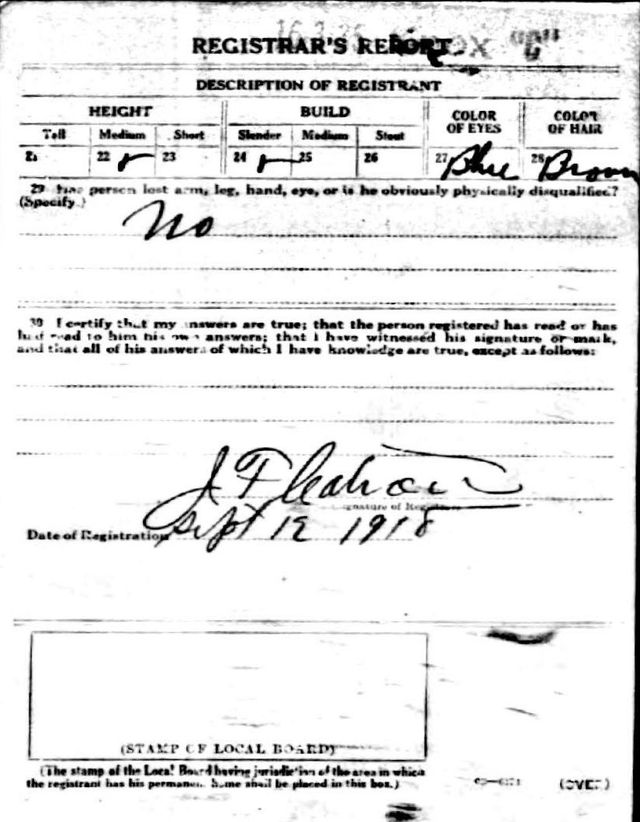 REGISTRAR'S REPORT
DESCRIPTION OF REGISTRANT
HEIGHT BUILD COLOR OF EYES COLOR OF HAIR
Tall Medium Short Slender Medium Stout
21 22 ✓ 23 24 ✓ 25 26 27 Blue 28 Brown
29 Has person lost arm, leg, hand, eye, or is he obviously physically disqualified?
(Specify.)
No
30 I certify that my answers are true; that the person registered has read or has
had read to him his own answers; that I have witnessed his signature or mark,
and that all of his answers of which I have knowledge are true, except as follows:
J F
Signature of Registrar
Date of Registration Sept 12 1918
(STAMP OF LOCAL BOARD)
(The stamp of the Local Board having jurisdiction of the area in which
the registrant has his permanent home shall be placed in this box.)
(OVER)